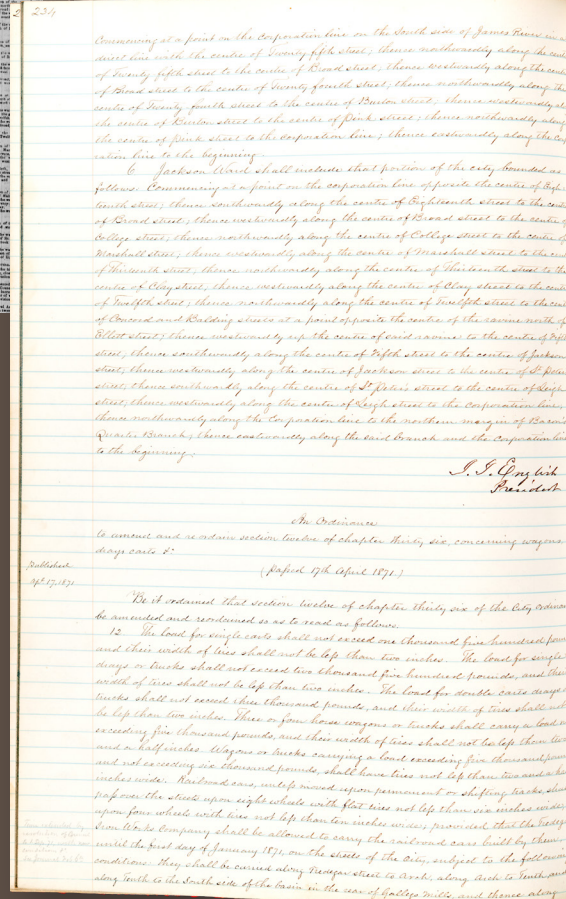 234
Commencing at a point on the corporation line on the South side of James River in a
direct line with the centre of Twenty fifth street; thence northwardly along the cent
of Twenty fifth street to the centre of Broad street, thence westwardly along the cent
of Broad street to the centre of Twenty fourth street; thence northwardly along the
centre of Twenty fourth street to the centre of Burton street; thence westwardly al
the centre of Burton street to the centre of Pink street; thence northwardly along
the centre of Pink street to the corporation line; thence eastwardly along the Corp
ration line to the beginning.
6. Jackson Ward shall include that portion of the city bounded as
follows. Commencing at a point on the corporation line opposite the centre of Eigh
teenth street; thence southwardly along the centre of Eighteenth street to the cent
of Broad street; thence westwardly along the centre of Broad street to the centre of
College street; thence northwardly along the centre of College street to the centre of
Marshall street; thence westwardly along the centre of Marshall street to the cen
of Thirteenth street; thence northwardly along the centre of Thirteenth street to the
centre of Clay street; thence westwardly along the centre of Clay street to the centre
of Twelfth street; thence northwardly along the centre of Twelfth street to the cent
of Concord and Balding streets at a point opposite the centre of the ravine north of
Elliott street; thence westwardly up the centre of said ravine to the centre of Fifth
street, thence southwardly along the centre of Fifth street to the centre of Jackson
street; thence westwardly along the centre of Jackson street to the centre of St Peter
street, thence southwardly along the centre of St. Peter's street to the centre of Leigh
street; thence westwardly along the centre of Leigh street to the corporation line,
thence northwardly along the Corporation line to the northern margin of Bacon's
Quarter Branch; thence eastwardly along the said branch and the Corporation line
to the beginning.
J. J. English
President
An Ordinance
to amend and re ordain section twelve of chapter thirty six, concerning wagons
drays carts &c
(passed 17th April 1871.)
Published
Apl. 17, 1871
Be it ordained that section twelve of chapter thirty six of the City Ordinan
be amended and reordained so as to read as follows.
12 The load for single carts shall not exceed one thousand five hundred poun
and their width of tires shall not be less than two inches. The load for single
drays or trucks shall not exceed two thousand five hundred pounds, and their
width of tires shall not be less than two inches. The load for double carts drays o
trucks shall not exceed three thousand pounds, and their width of tires shall not
be less than two inches. Three or four horse wagons or trucks shall carry a load n
exceeding five thousand pounds, and their width of tires shall not be less than two
and a half inches. Wagons or trucks carrying a load exceeding five thousand poun
and not exceeding six thousand pounds, shall have tires not less than two and a ha
inches wide. Railroad cars, unless moved upon permanent or shifting tracks, shal
pass over the streets upon eight wheels with flat tires not less than six inches wide,
upon four wheels with tires not less than ten inches wide; provided that the Tredeg
Iron Works Company shall be allowed to carry the railroad cars built by them,
until the first day of January 1871, on the streets of the City, subject to the followin
conditions: they shall be carried along Tredegar street to Arch, along Arch to Tenth and
along Tenth to the South side of the basin in the rear of Gallego Mills, and thence along